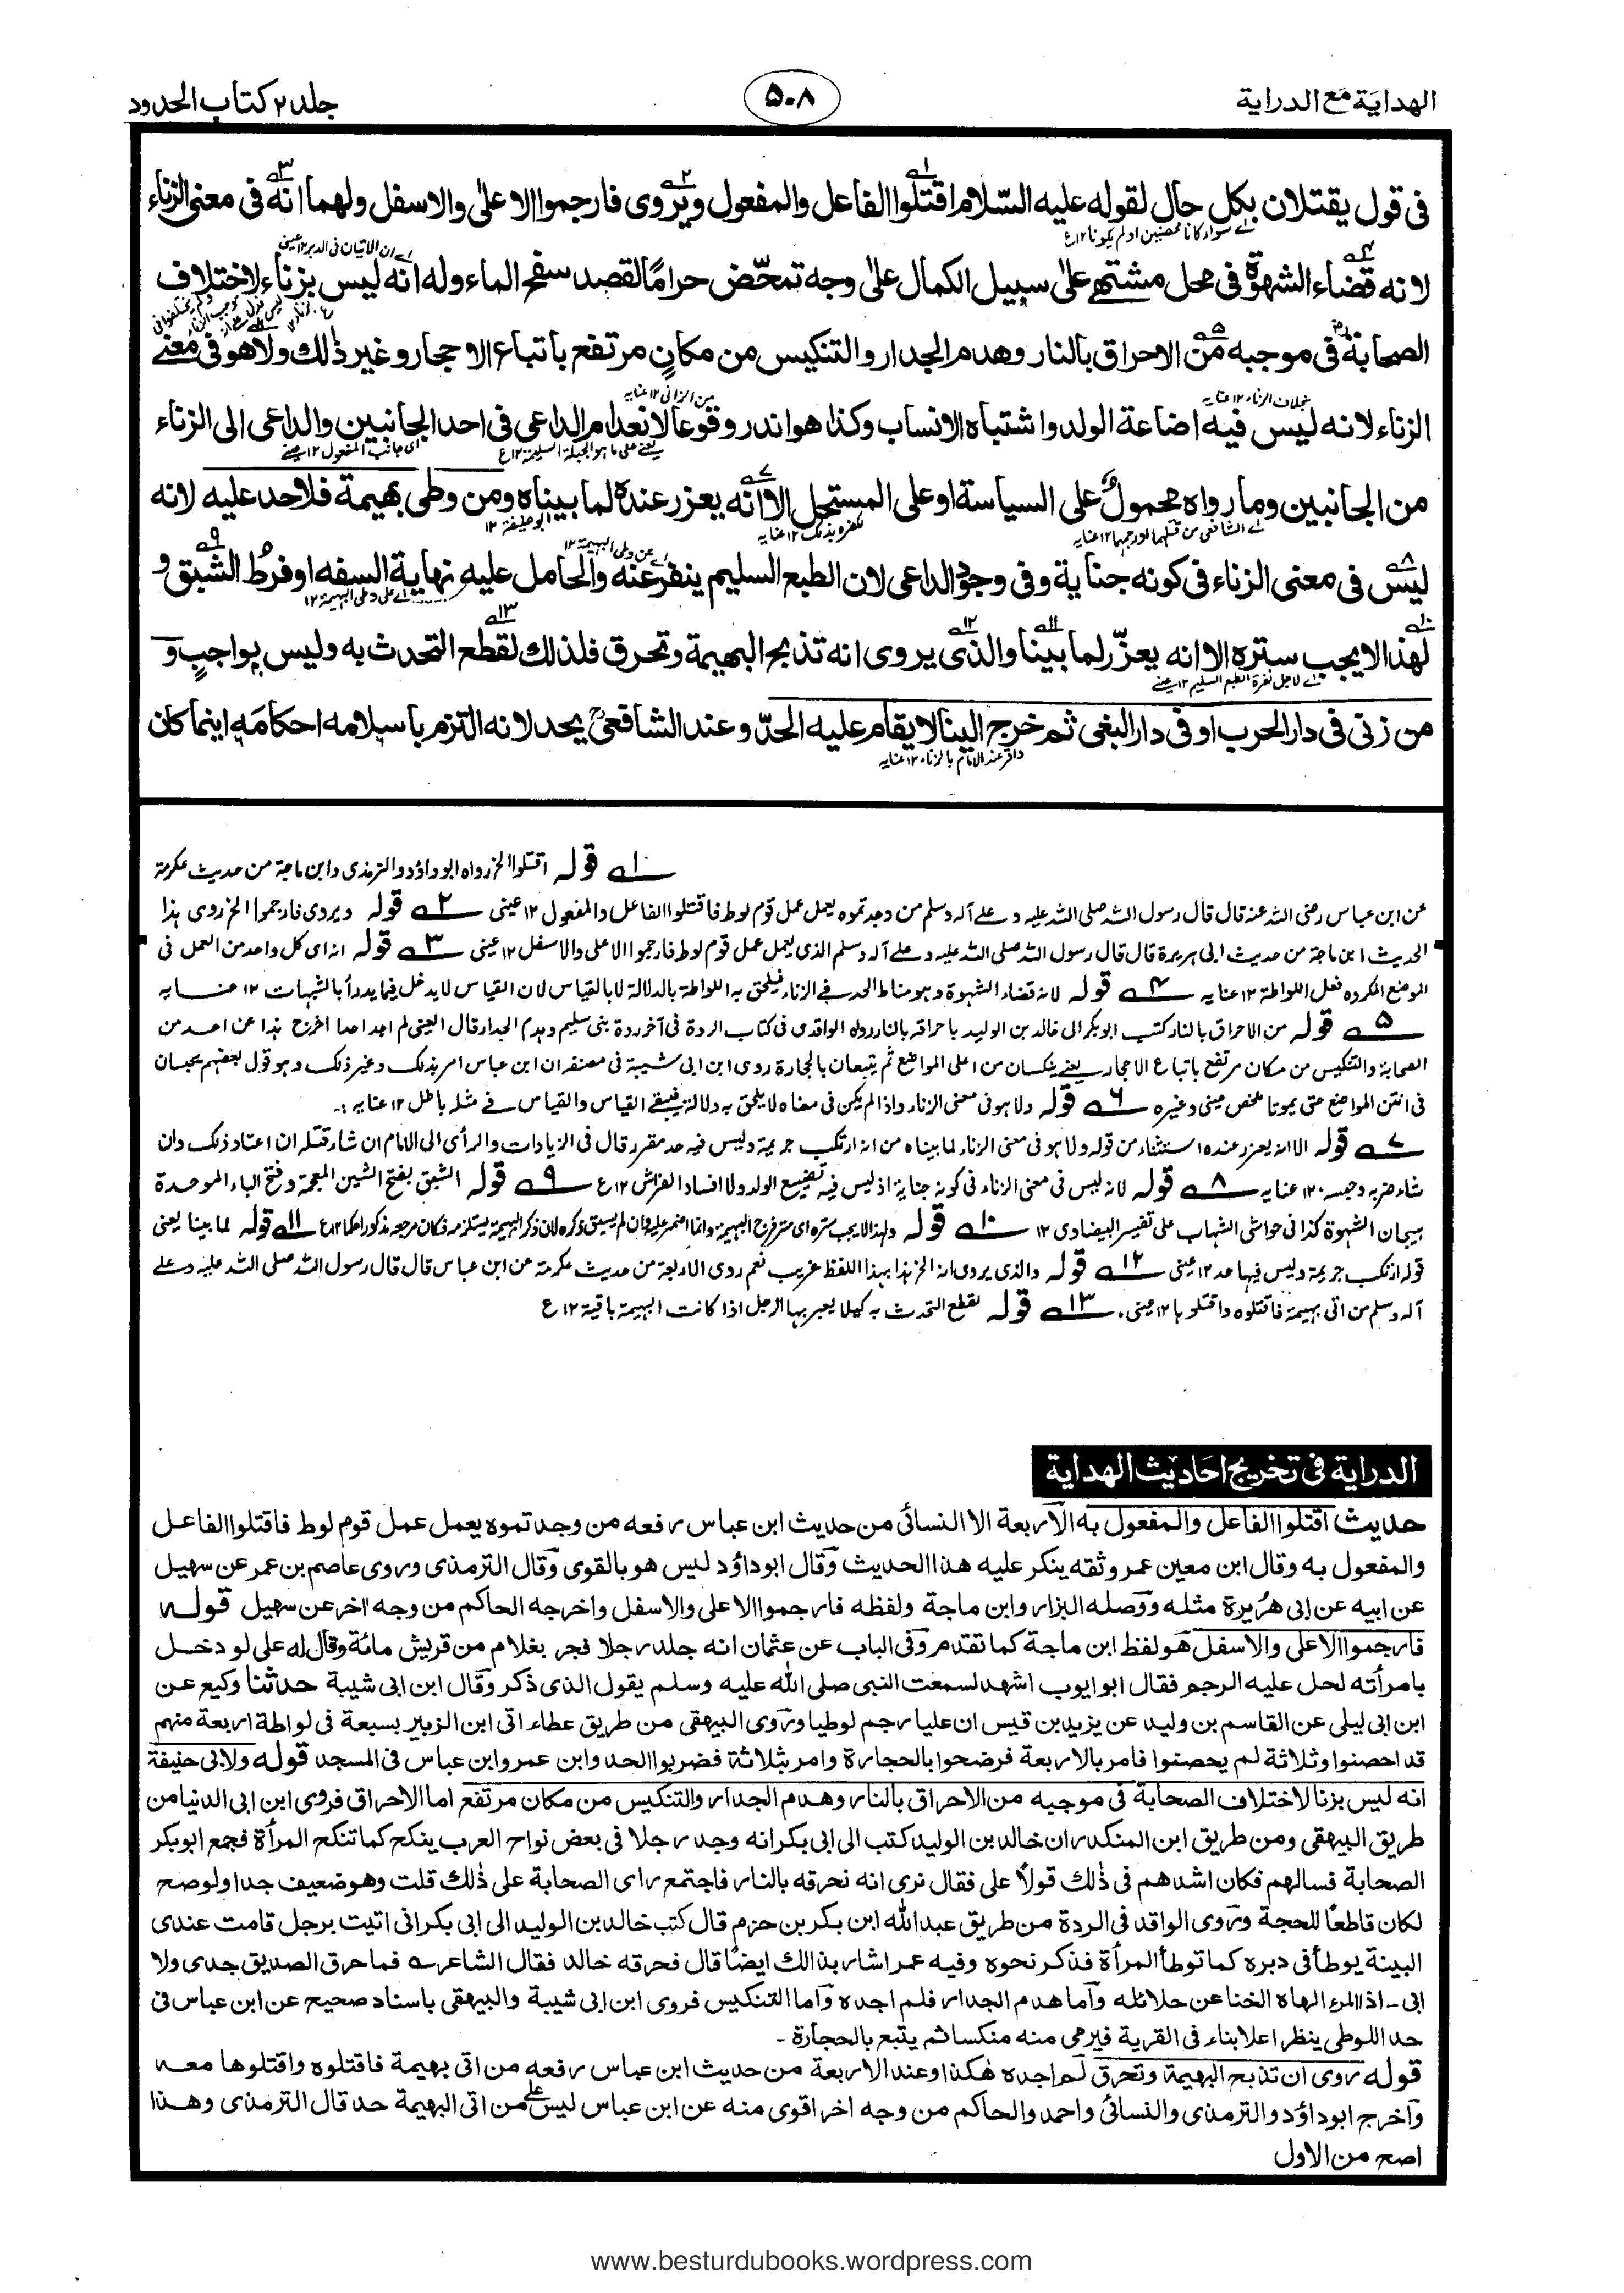 الهداية مع الدراية
۵۰۸
جلد ۲ كتاب الحدود
في قول يقتلان بكل حال لقوله عليه السّلام اقتلوا الفاعل والمفعول ويروى فارجموا الاعلى والاسفل ولهما انه في معنى الزناء
لانه قضاء الشهوة في محل مشتهى على سبيل الكمال على وجه تمحّض حرامًا لقصد سفح الماء وله انه ليس بزناء لاختلاف
الصحابة في موجبه من الاحراق بالنار وهدم الجدار والتنكيس من مكانٍ مرتفع باتباع الاحجار وغير ذلك ولا هو في معنى
الزناء لانه ليس فيه اضاعة الولد واشتباه الانساب وكذا هو اندر وقوعا لانعدام الداعي في احد الجانبين والداعي الى الزناء
من الجانبين وما رواه محمول على السياسة او على المستحل الا انه يعزر عنده لما بيناه ومن وطى بهيمة فلا حد عليه لانه
ليس في معنى الزناء في كونه جناية وفي وجود الداعي لان الطبع السليم ينفر عنه والحامل عليه نهاية السفه او فرط الشبق و
لهذا لا يجب ستره الا انه يعزّر لما بينا والذي يروى انه تذبح البهيمة وتحرق فلذلك لقطع التحدث به وليس بواجبٍ و
من زنى في دار الحرب او في دار البغي ثم خرج الينا لا يقام عليه الحدّ وعند الشافعي يحد لانه التزم باسلامه احكامه اينما كان
۱ قوله اقتلوا الخ رواه ابو داؤد والترمذي وابن ماجة من حديث عكرمة
عن ابن عباس رضى الله عنه قال قال رسول الله صلى الله عليه وعلى آله وسلم من وجدتموه يعمل عمل قوم لوط فاقتلوا الفاعل والمفعول ۱۲ عيني ۲ قوله ويروى فارجموا الخ روى هذا
الحديث ابن ماجة من حديث ابي هريرة قال قال رسول الله صلى الله عليه وعلى آله وسلم الذي يعمل عمل قوم لوط فارجموا الاعلى والاسفل ۱۲ عيني ۳ قوله انه اى كل واحد من العمل في
الموضع المكروه فعل اللواطة ۱۲ عنايه ۴ قوله لانه قضاء الشهوة وهو مناط الحد في الزناء فيلحق به اللواطة بالدلالة لا بالقياس لان القياس لا يدخل فيما يدرأ بالشبهات ۱۲ عنايه
۵ قوله من الاحراق بالنار كتب ابو بكر الى خالد بن الوليد باحراقه بالنار رواه الواقدي في كتاب الردة في آخر ردة بني سليم وهدم الجدار قال العيني لم اجد احدا اخرج هذا عن احد من
الصحابة والتنكيس من مكان مرتفع باتباع الاحجار يعني ينكسان من اعلى المواضع ثم يتبعان بالحجارة روى ابن ابي شيبة في مصنفه ان ابن عباس امر بذلك وغير ذلك وهو قول بعضهم يحبسان
في انتن المواضع حتى يموتا ملخص عيني وغيره ۶ قوله ولا هو في معنى الزناء واذا لم يكن في معناه لا يلحق به دلالة فبقى القياس والقياس في مثله باطل ۱۲ عنايه
۷ قوله الا انه يعزر عنده استثناء من قوله ولا هو في معنى الزناء لما بيناه من انه ارتكب جريمة وليس فيه حد مقرر قال في الزيادات والرأى الى الامام ان شاء قتله ان اعتاد ذلك وان
شاء ضربه وحبسه ۱۲ عنايه ۸ قوله لانه ليس في معنى الزناء في كونه جناية اذ ليس فيه تضييع الولد ولا افساد الفراش ۱۲ ع ۹ قوله الشبق بفتح الشين المعجمة وفتح الباء الموحدة
هيجان الشهوة كذا في حواشي الشهاب على تفسير البيضاوي ۱۲ ۱۰ قوله ولهذا لا يجب ستره اى ستر فرج البهيمة وانما اضمر عليه وان لم يسبق ذكره لان ذكر البهيمة يستلزمه فكان مرجعه مذكورا حكما ۱۲ ع ۱۱ قوله لما بينا يعني
قوله ارتكب جريمة وليس فيها حد ۱۲ عيني ۱۲ قوله والذي يروى انه الخ هذا بهذا اللفظ غريب نعم روى الاربعة من حديث عكرمة عن ابن عباس قال قال رسول الله صلى الله عليه وعلى
آله وسلم من اتى بهيمة فاقتلوه واقتلوها ۱۲ عيني ۱۳ قوله لقطع التحدث به كيلا يعير بها الرجل اذا كانت البهيمة باقية ۱۲ ع
الدراية في تخريج احاديث الهداية
حديث اقتلوا الفاعل والمفعول به الاربعة الا النسائي من حديث ابن عباس رفعه من وجدتموه يعمل عمل قوم لوط فاقتلوا الفاعل
والمفعول به وقال ابن معين عمرو ثقه ينكر عليه هذا الحديث وقال ابو داؤد ليس هو بالقوي وقال الترمذي وروى عاصم بن عمر عن سهيل
عن ابيه عن ابي هريرة مثله ووصله البزار وابن ماجة ولفظه فارجموا الاعلى والاسفل واخرجه الحاكم من وجه اخر عن سهيل قوله
فارجموا الاعلى والاسفل هو لفظ ابن ماجة كما تقدم وفي الباب عن عثمان انه جلد رجلا فجر بغلام من قريش مائة وقال له على لو دخل
بامرأته لحل عليه الرجم فقال ابو ايوب اشهد لسمعت النبي صلى الله عليه وسلم يقول الذي ذكر وقال ابن ابي شيبة حدثنا وكيع عن
ابن ابي ليلى عن القاسم بن وليد عن يزيد بن قيس ان عليا رجم لوطيا وروى البيهقي من طريق عطاء اتى ابن الزبير بسبعة في لواطة اربعة منهم
قد احصنوا وثلاثة لم يحصنوا فامر بالاربعة فرضحوا بالحجارة وامر بثلاثة فضربوا الحد وابن عمر وابن عباس في المسجد قوله ولابي حنيفة
انه ليس بزنا لاختلاف الصحابة في موجبه من الاحراق بالنار وهدم الجدار والتنكيس من مكان مرتفع اما الاحراق فروى ابن ابي الدنيا من
طريق البيهقي ومن طريق ابن المنكدر ان خالد بن الوليد كتب الى ابي بكر انه وجد رجلا في بعض نواح العرب ينكح كما تنكح المرأة فجمع ابو بكر
الصحابة فسالهم فكان اشدهم في ذلك قولا على فقال نرى انه نحرقه بالنار فاجتمع راى الصحابة على ذلك قلت وهو ضعيف جدا ولو صح
لكان قاطعا للحجة وروى الواقد في الردة من طريق عبد الله ابن بكر بن حزم قال كتب خالد بن الوليد الى ابي بكر اني اتيت برجل قامت عندي
البينة يوطأ في دبره كما توطأ المرأة فذكر نحوه وفيه عمر اشار بذالك ايضا قال فحرقه خالد فقال الشاعر فما حرق الصديق جدي ولا
ابي - اذا المرء الهاه الخنا عن حلائله واما هدم الجدار فلم اجده واما التنكيس فروى ابن ابي شيبة والبيهقي باسناد صحيح عن ابن عباس في
حد اللوطى ينظر اعلا بناء في القرية فيرمى منه منكسا ثم يتبع بالحجارة -
قوله روى ان تذبح البهيمة وتحرق لم اجده هكذا وعند الاربعة من حديث ابن عباس رفعه من اتى بهيمة فاقتلوه واقتلوها معه
واخرج ابو داؤد والترمذي والنسائي واحمد والحاكم من وجه اخر اقوى منه عن ابن عباس ليس على من اتى البهيمة حد قال الترمذي وهذا
اصح من الاول
www.besturdubooks.wordpress.com